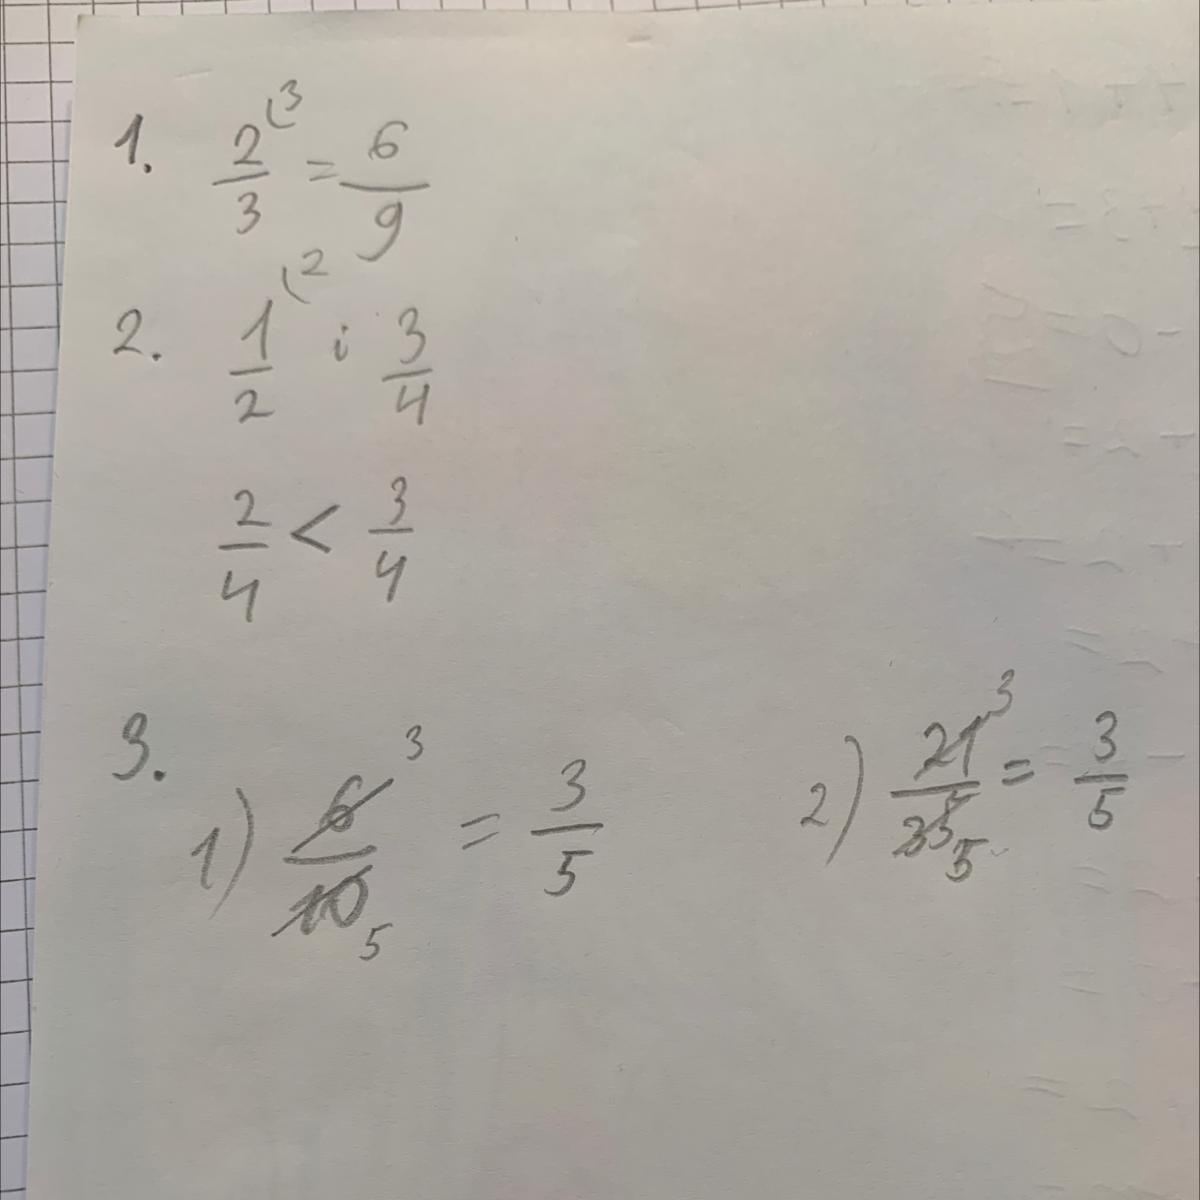 1. 2/3 (3 = 6/9
2. 1/2 (2 i 3/4
2/4 < 3/4
3.
1) 6/10 3 5 = 3/5
2) 21/35 3 5 = 3/5